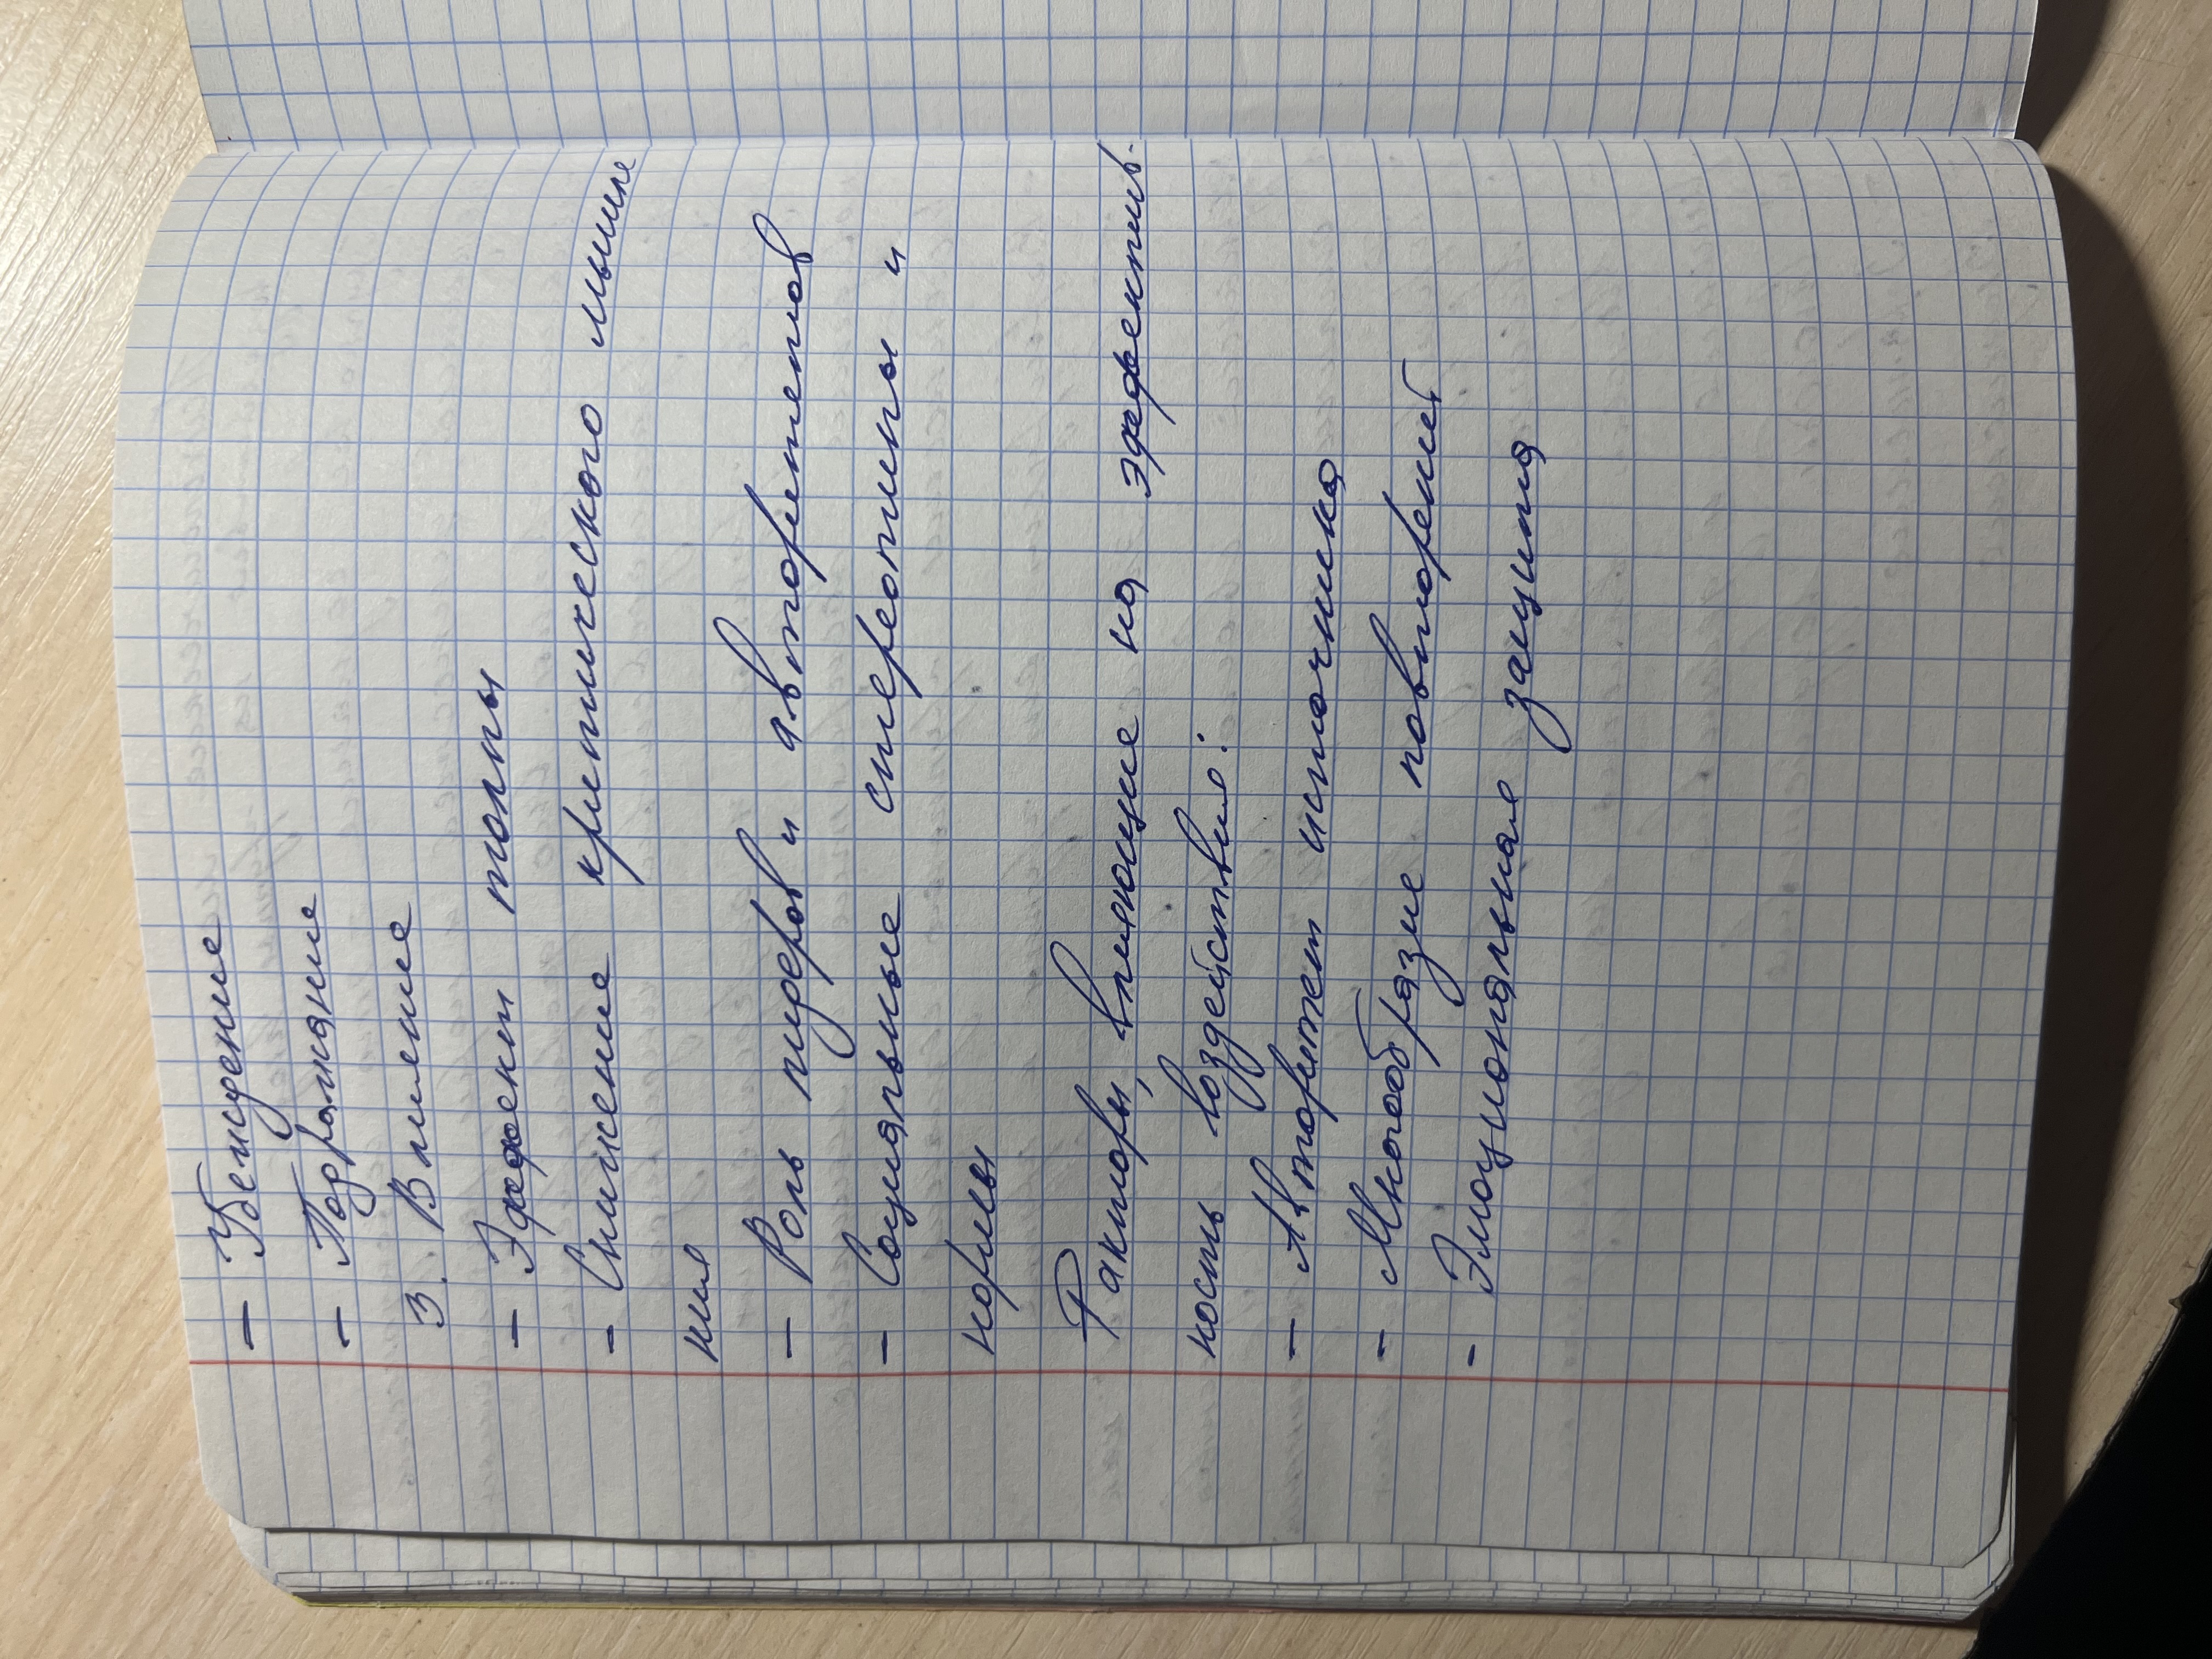 - Убеждение
- Подражание
3. Влияние
- Эффект толпы
- Снижение критического мышле
ния
- Роль лидеров и авторитетов
- Социальные стереотипы и
нормы
Факторы, влияющие на эффектив-
ность воздействия:
- Авторитет источника
- Многообразие повторений
- Эмоциональная защита